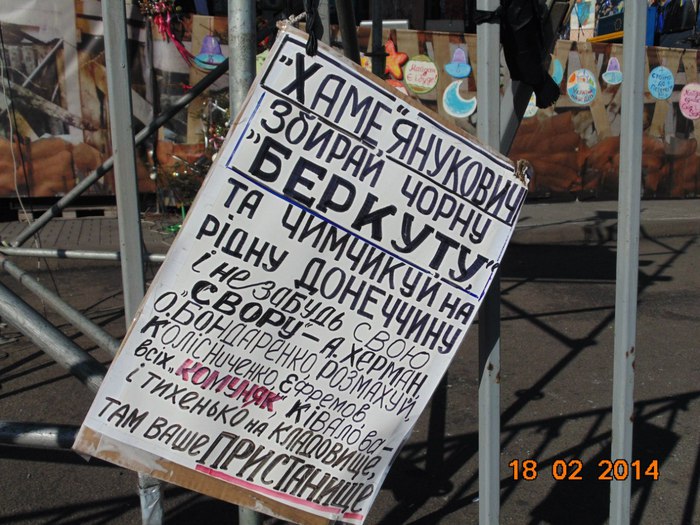 "ХАМЕ" ЯНУКОВИЧ!
ЗБИРАЙ ЧОРНУ
"БЕРКУТУ"
ТА ЧИМЧИКУЙ НА
РІДНУ ДОНЕЧЧИНУ
і не забудь свою
"СВОРУ" – А. ХЕРМАН
О. БОНДАРЕНКО, РОЗМАХУЙ,
КОЛІСНИЧЕНКО, ЕФРЕМОВ
ВСІХ, "КОМУНЯК" КІВАЛОВА –
І ТИХЕНЬКО НА КЛАДОВИЩЕ,
ТАМ ВАШЕ ПРИСТАНИЩЕ
18 02 2014